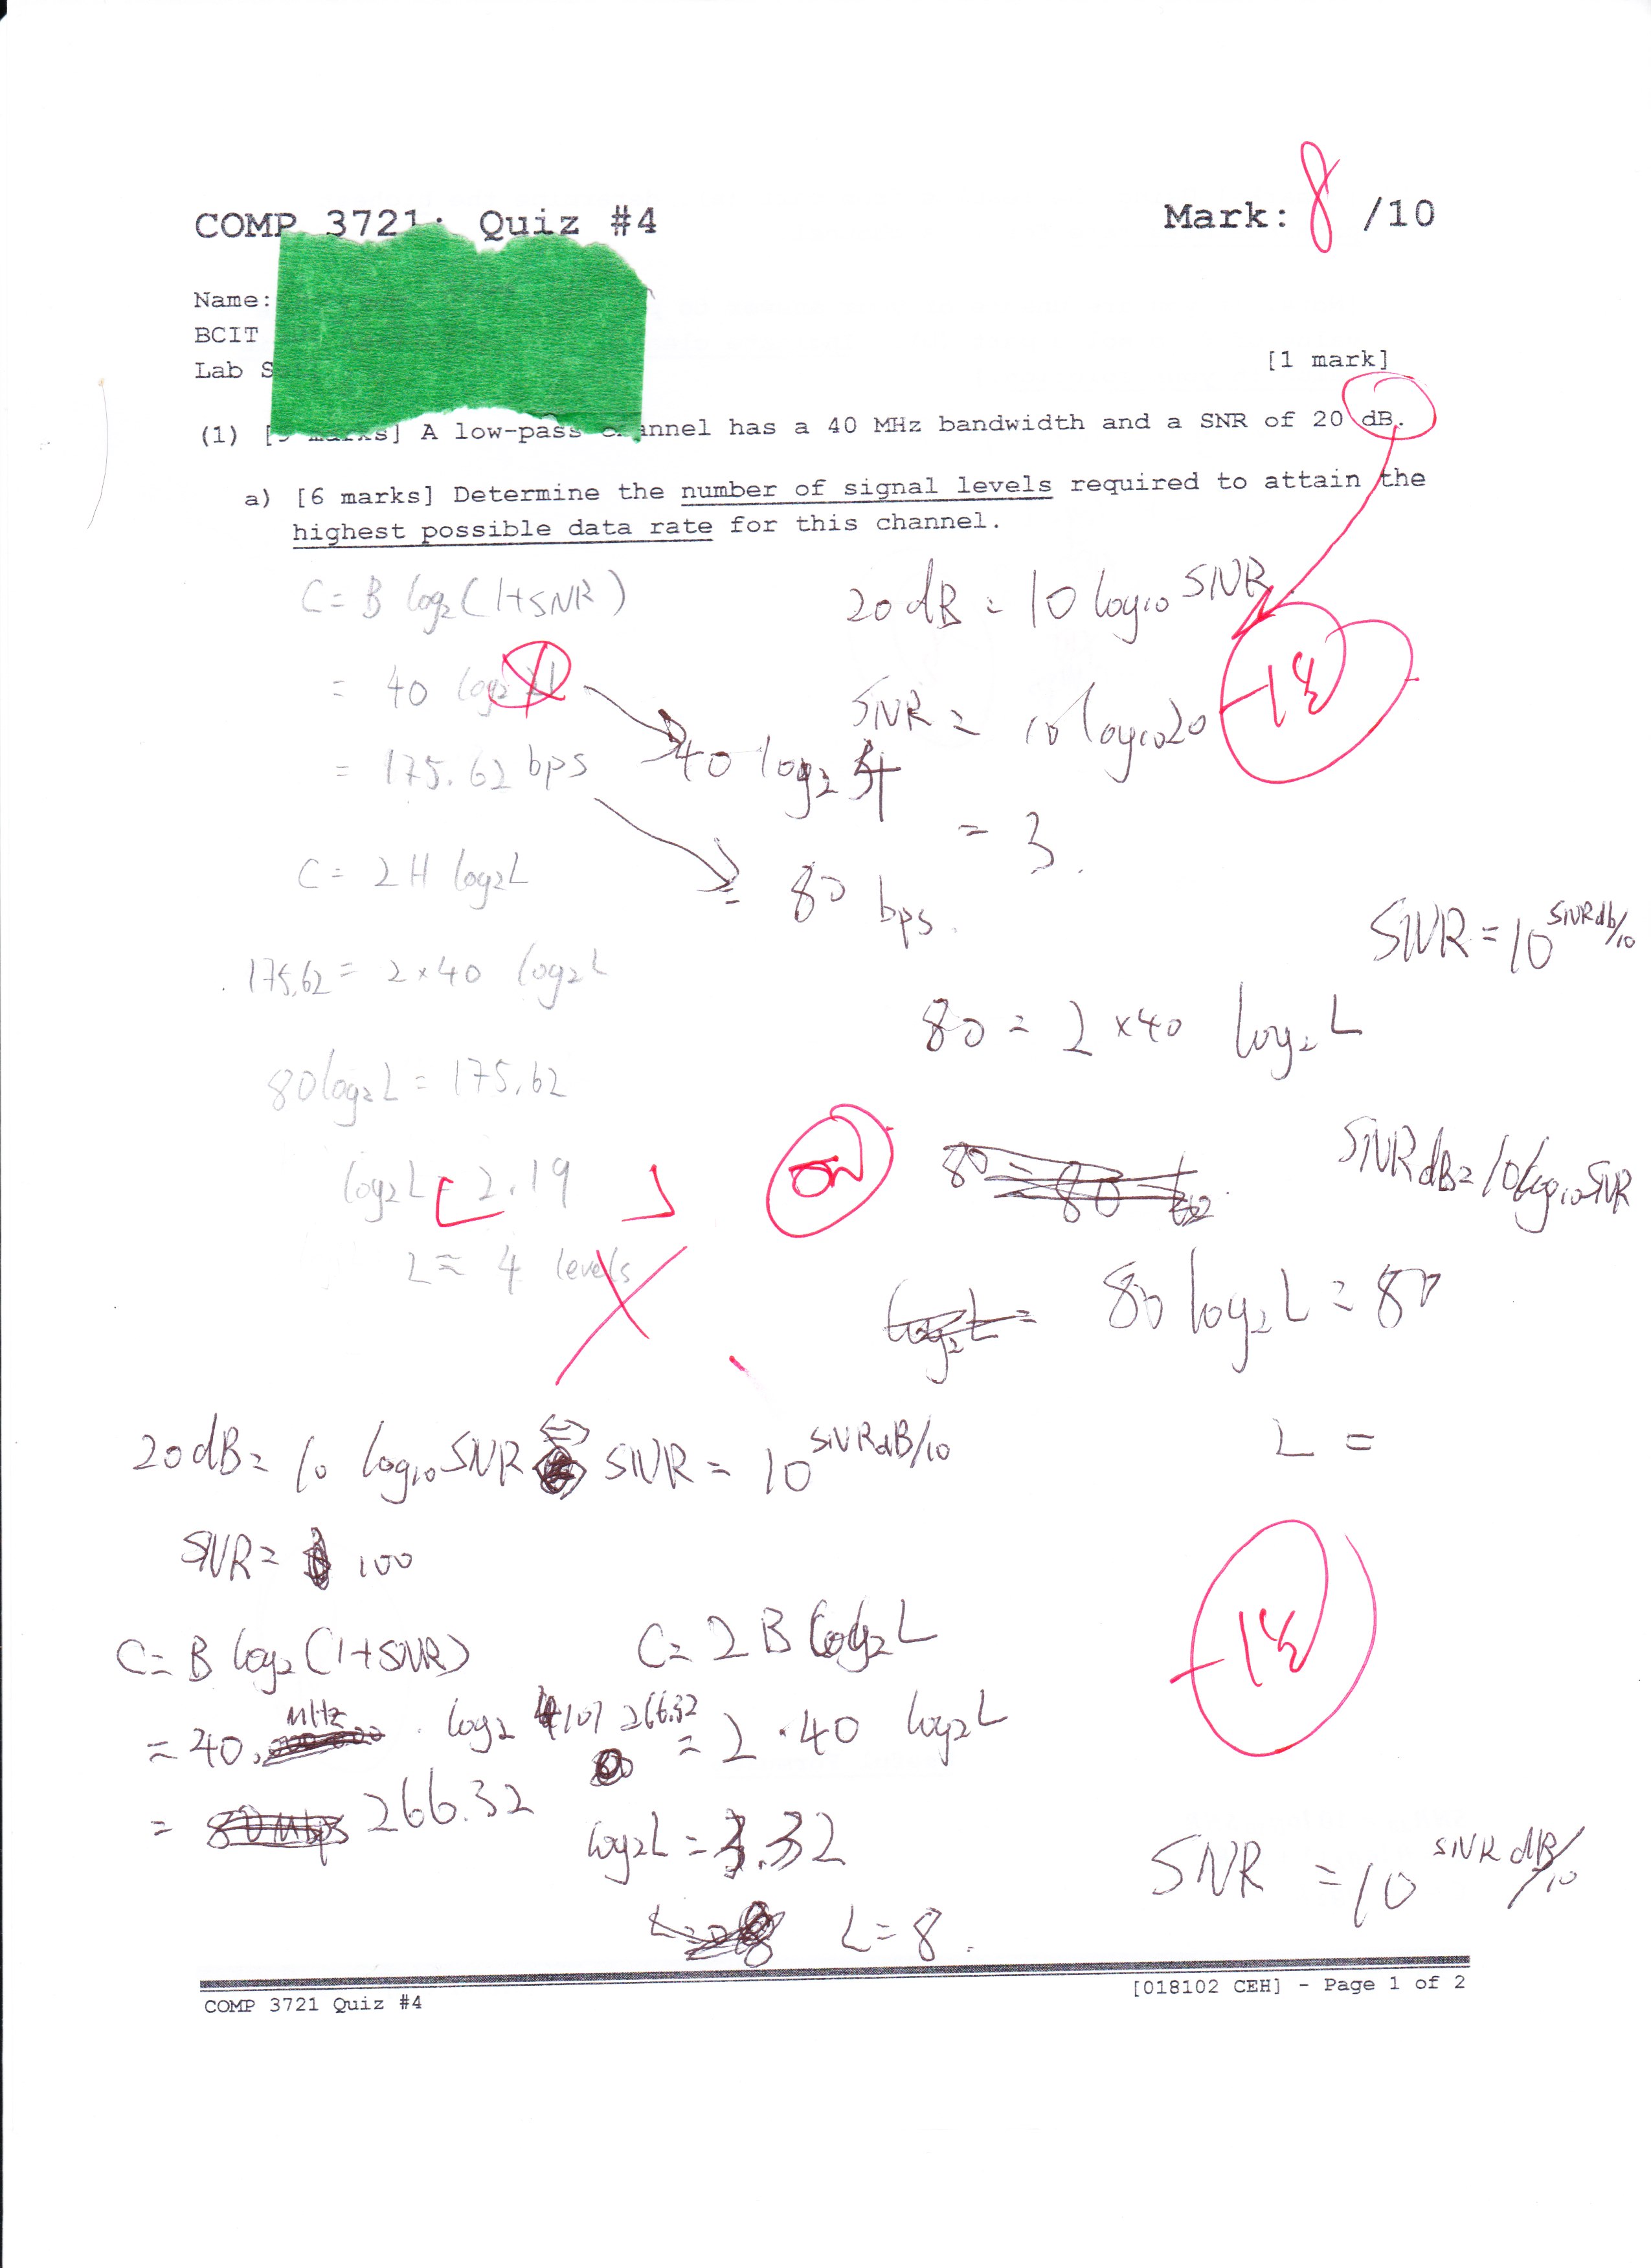 COMP 3721: Quiz #4
Mark: 8 /10
Name:
BCIT
Lab S
[1 mark]
(1) [ marks] A low-pass channel has a 40 MHz bandwidth and a SNR of 20 dB.
a) [6 marks] Determine the number of signal levels required to attain the
highest possible data rate for this channel.
C = B log₂(1+SNR)
= 40 log₂
= 175.62 bps
C = 2H log₂L
175.62 = 2×40 log₂L
80log₂L = 175.62
log₂L = 2.19
L = 4 levels
20 dB = 10 log₁₀ SNR
SNR = 10 log₁₀20
= 3.
40 log₂ 4
= 80 bps.
SNR = 10^SNRdb/10
80 = 2 ×40 log₂L
SNRdB = 10log₁₀SNR
80 log₂L = 80
L =
20dB = 10 log₁₀SNR <=> SNR = 10^SNRdB/10
SNR = 100
C = B log₂(1+SNR)
= 40 MHz · log₂ 101
= 266.32
C = 2B log₂L
266.32 = 2·40 log₂L
log₂L = 3.32
L = 8.
SNR = 10^SNR dB/10
COMP 3721 Quiz #4
[018102 CEH] - Page 1 of 2